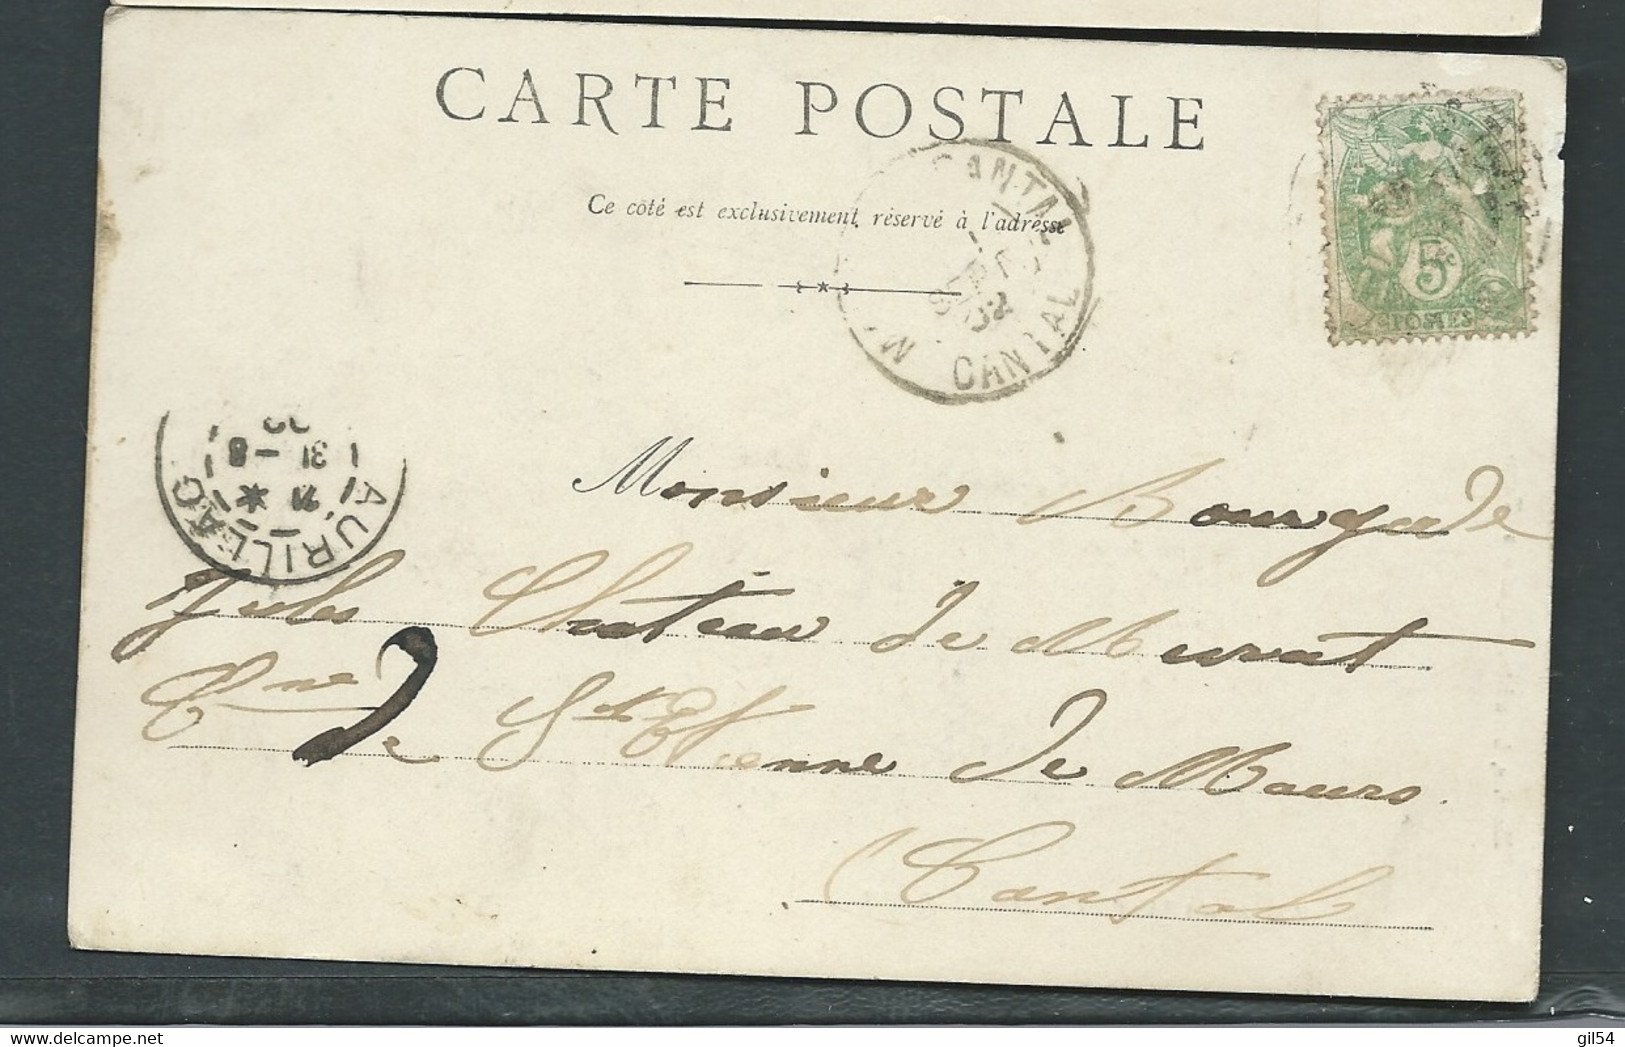 CARTE POSTALE
Ce côté est exclusivement réservé à l'adresse
CANTAL
02
CANTAL
5
POSTES
AURILLAC
31 -8
Monsieur Bourgade
Jules Chateau de Murat
Cne de St Etienne de Maurs
Cantal
gil54